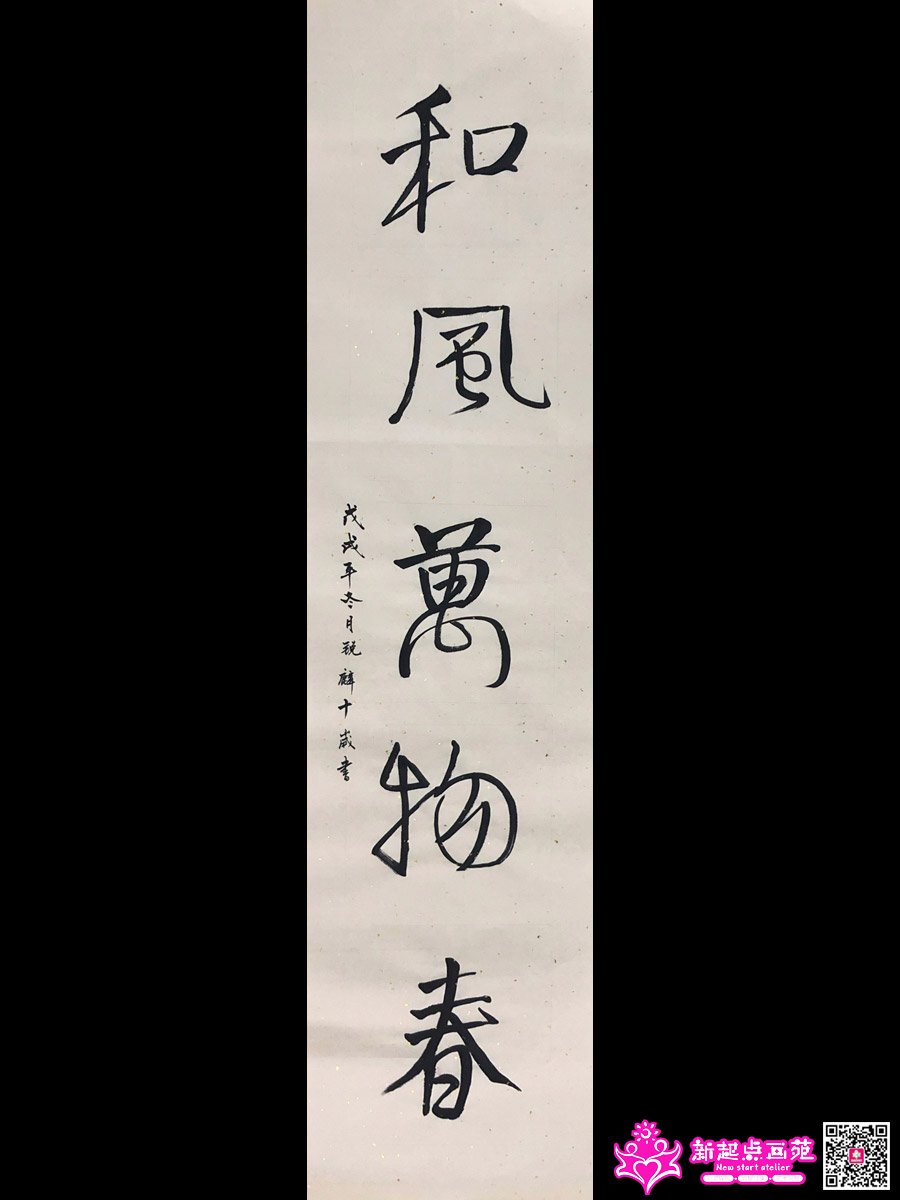 和風萬物春
戊戌年冬月 麟十歲書
新起点画苑
New start atelier